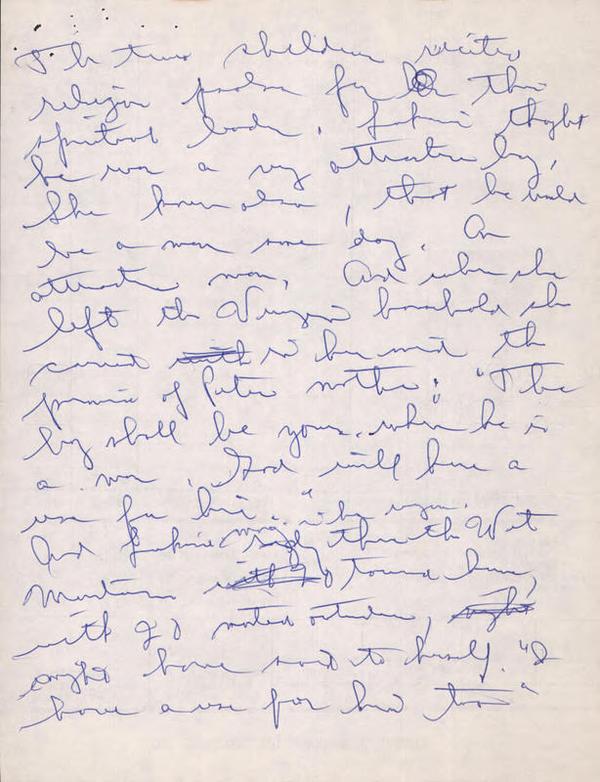 The two children recited
religion psalms for the
spiritual leader. thought
he was a very attractive boy.
She knew also, that he would
be a man some day. An
attractive man. And when she
left the household she
carried with in her mind the
promise of mother: "The
boy shall be yours when he is
a man. God will have a
use for him."
And thru the Wet
Mountains with toward home,
with outside, might
might have said to herself. "I
have a use for him too"